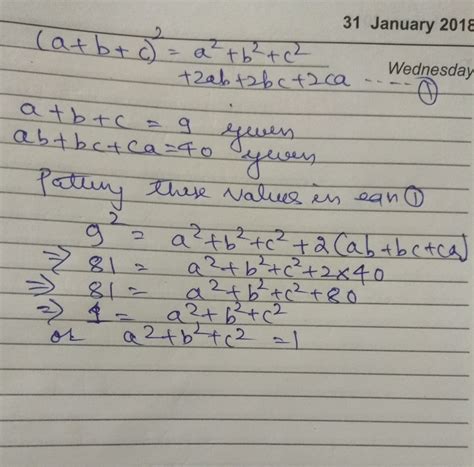 31 January 2018
(a+b+c)² = a²+b²+c²
+2ab+2bc+2ca ---- ①
Wednesday
a+b+c = 9 given
ab+bc+ca=40 given
Putting these values in eqn ①
9² = a²+b²+c²+2(ab+bc+ca)
⇒ 81 = a²+b²+c²+2×40
⇒ 81 = a²+b²+c²+80
⇒ 1 = a²+b²+c²
or a²+b²+c² =1